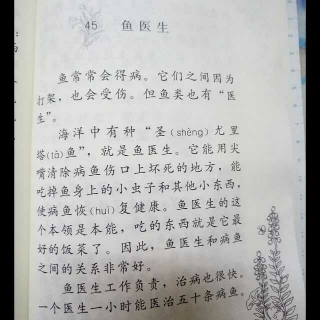 45 鱼医生
鱼常常会得病。它们之间因为
打架，也会受伤。但鱼类也有“医
生”。
海洋中有种“圣(shèng)尤里
塔(tǎ)鱼”，就是鱼医生。它能用尖
嘴清除病鱼伤口上坏死的地方，能
吃掉鱼身上的小虫子和其他小东西，
使病鱼恢(huī)复健康。鱼医生的这
个本领是本能，吃的东西就是它最
好的饭菜了。因此，鱼医生和病鱼
之间的关系非常好。
鱼医生工作负责，治病也很快。
一个医生一小时能医治五十条病鱼。